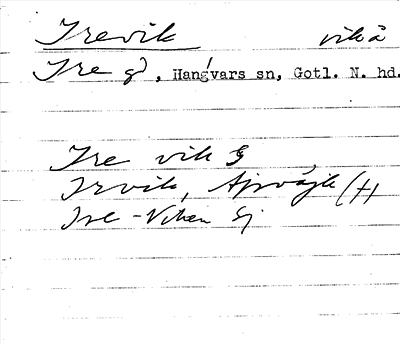 Irevik vikå
Ire gd, Hangvars sn, Gotl. N. hd.
Ire vik G
Irvik, Ajrvåjk (H
Ire-Viken Gj